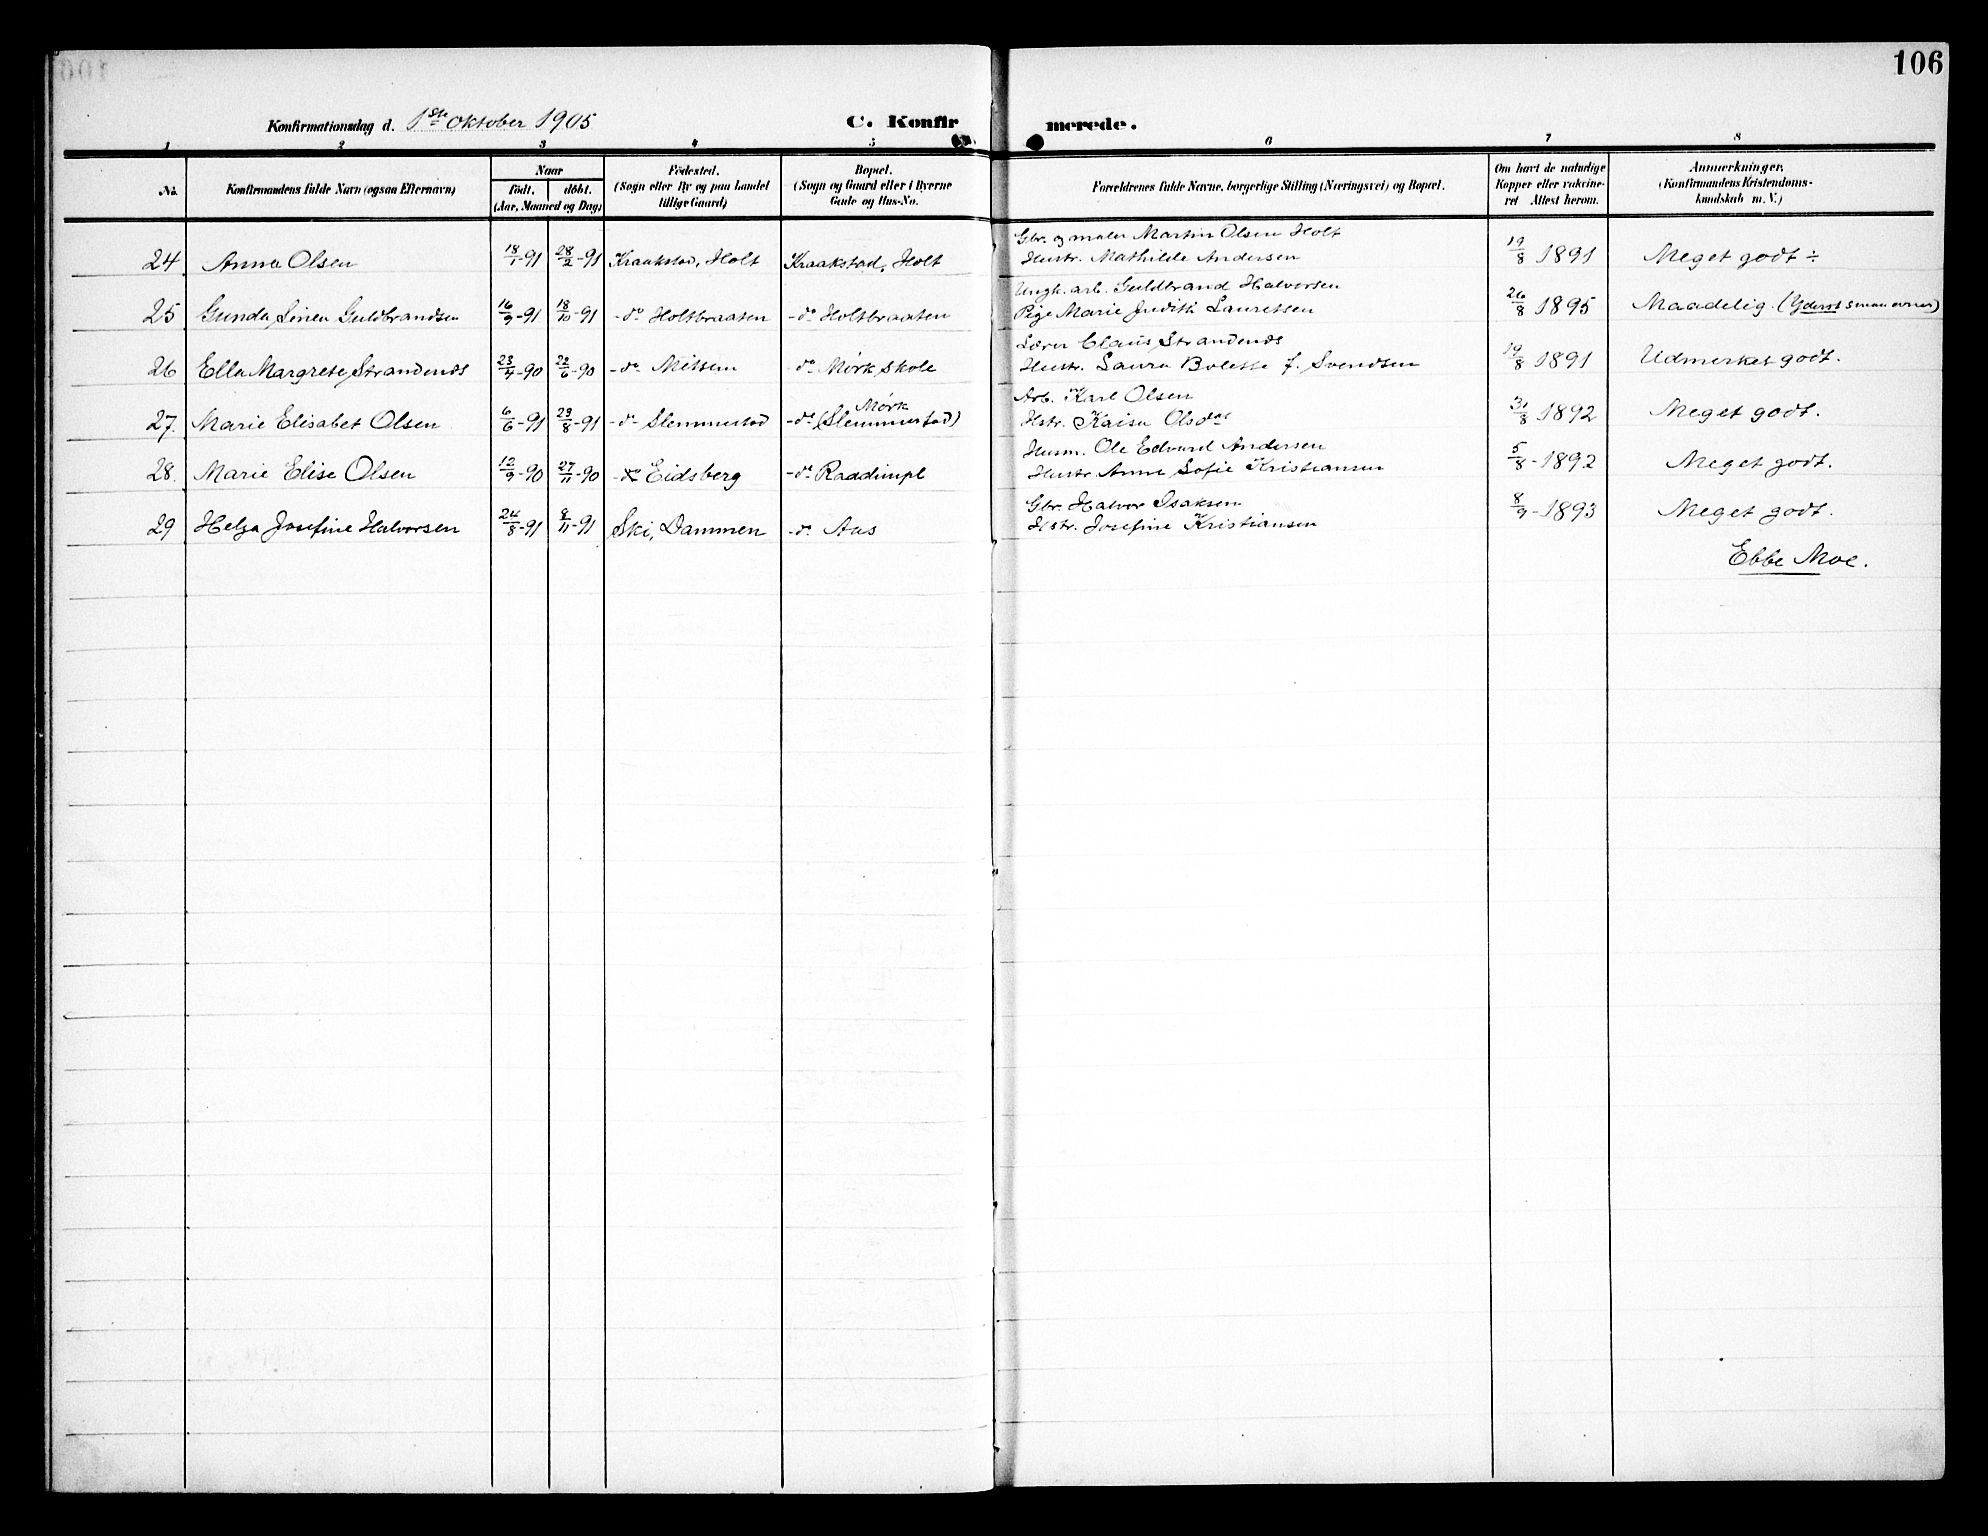 106
Konfirmationsdag d. 1ste Oktober 1905
C. Konfirmerede.
1 2 3 4 5 6 7 8
No.
Konfirmandens fulde Navn (ogsaa Efternavn)
Naar
født. døbt.
(Aar, Maaned og Dag)
Fødested.
(Sogn eller By og paa Landet
tillige Gaard)
Bopæl.
(Sogn og Gaard eller i Byerne
Gade og Hus-No.
Forældrenes fulde Navne, borgerlige Stilling (Næringsvei) og Bopæl.
Om havt de naturlige
Kopper eller vakcine-
ret Attest herom.
Anmærkninger.
(Konfirmandens Kristendoms-
kundskab m. V.)
Gbr. og maler Martin Olsen Holt
24 Anna Olsen 18/1-91 28/2-91 Kraakstad, Holt Kraakstad, Holt Hustr. Mathilde Andersen 19/8 1891 Meget godt ÷
Ungk. arb. Guldbrand Halvorsen
25 Gunda Linea Guldbrandsen 16/9-91 18/10-91 -do- Holtbraaten -do- Holtbraaten Pige Marie Judith Lauretsen 26/8 1895 Maadelig. (Yderst smaa evner)
Lærer Claus Strandenæs
26 Ella Margrete Strandenæs 23/4-90 22/6-90 -do- Mittem -do- Mørk skole Hustr. Laura Bolette f. Svendsen 19/8 1891 Udmerket godt.
Arb. Karl Olsen
27. Marie Elisabet Olsen 6/6-91 23/8-91 -do- Slemmestad -do- Mørk (Slemmestad) Hstr. Kaisa Olsdat 31/8 1892 Meget godt.
Husm. Ole Edvard Andersen
28. Marie Elise Olsen 12/9-90 27/11-90 -do- Eidsberg -do- Raddimpl Hustr. Anne Sofie Kristiansen 5/8-1892 Meget godt.
Gbr. Halvor Isaksen
29 Helga Josefine Halvorsen 24/8-91 8/11-91 Ski, Dammen -do- Aas Hstr. Josefine Kristiansen 8/9-1893 Meget godt.
Ebbe Moe.